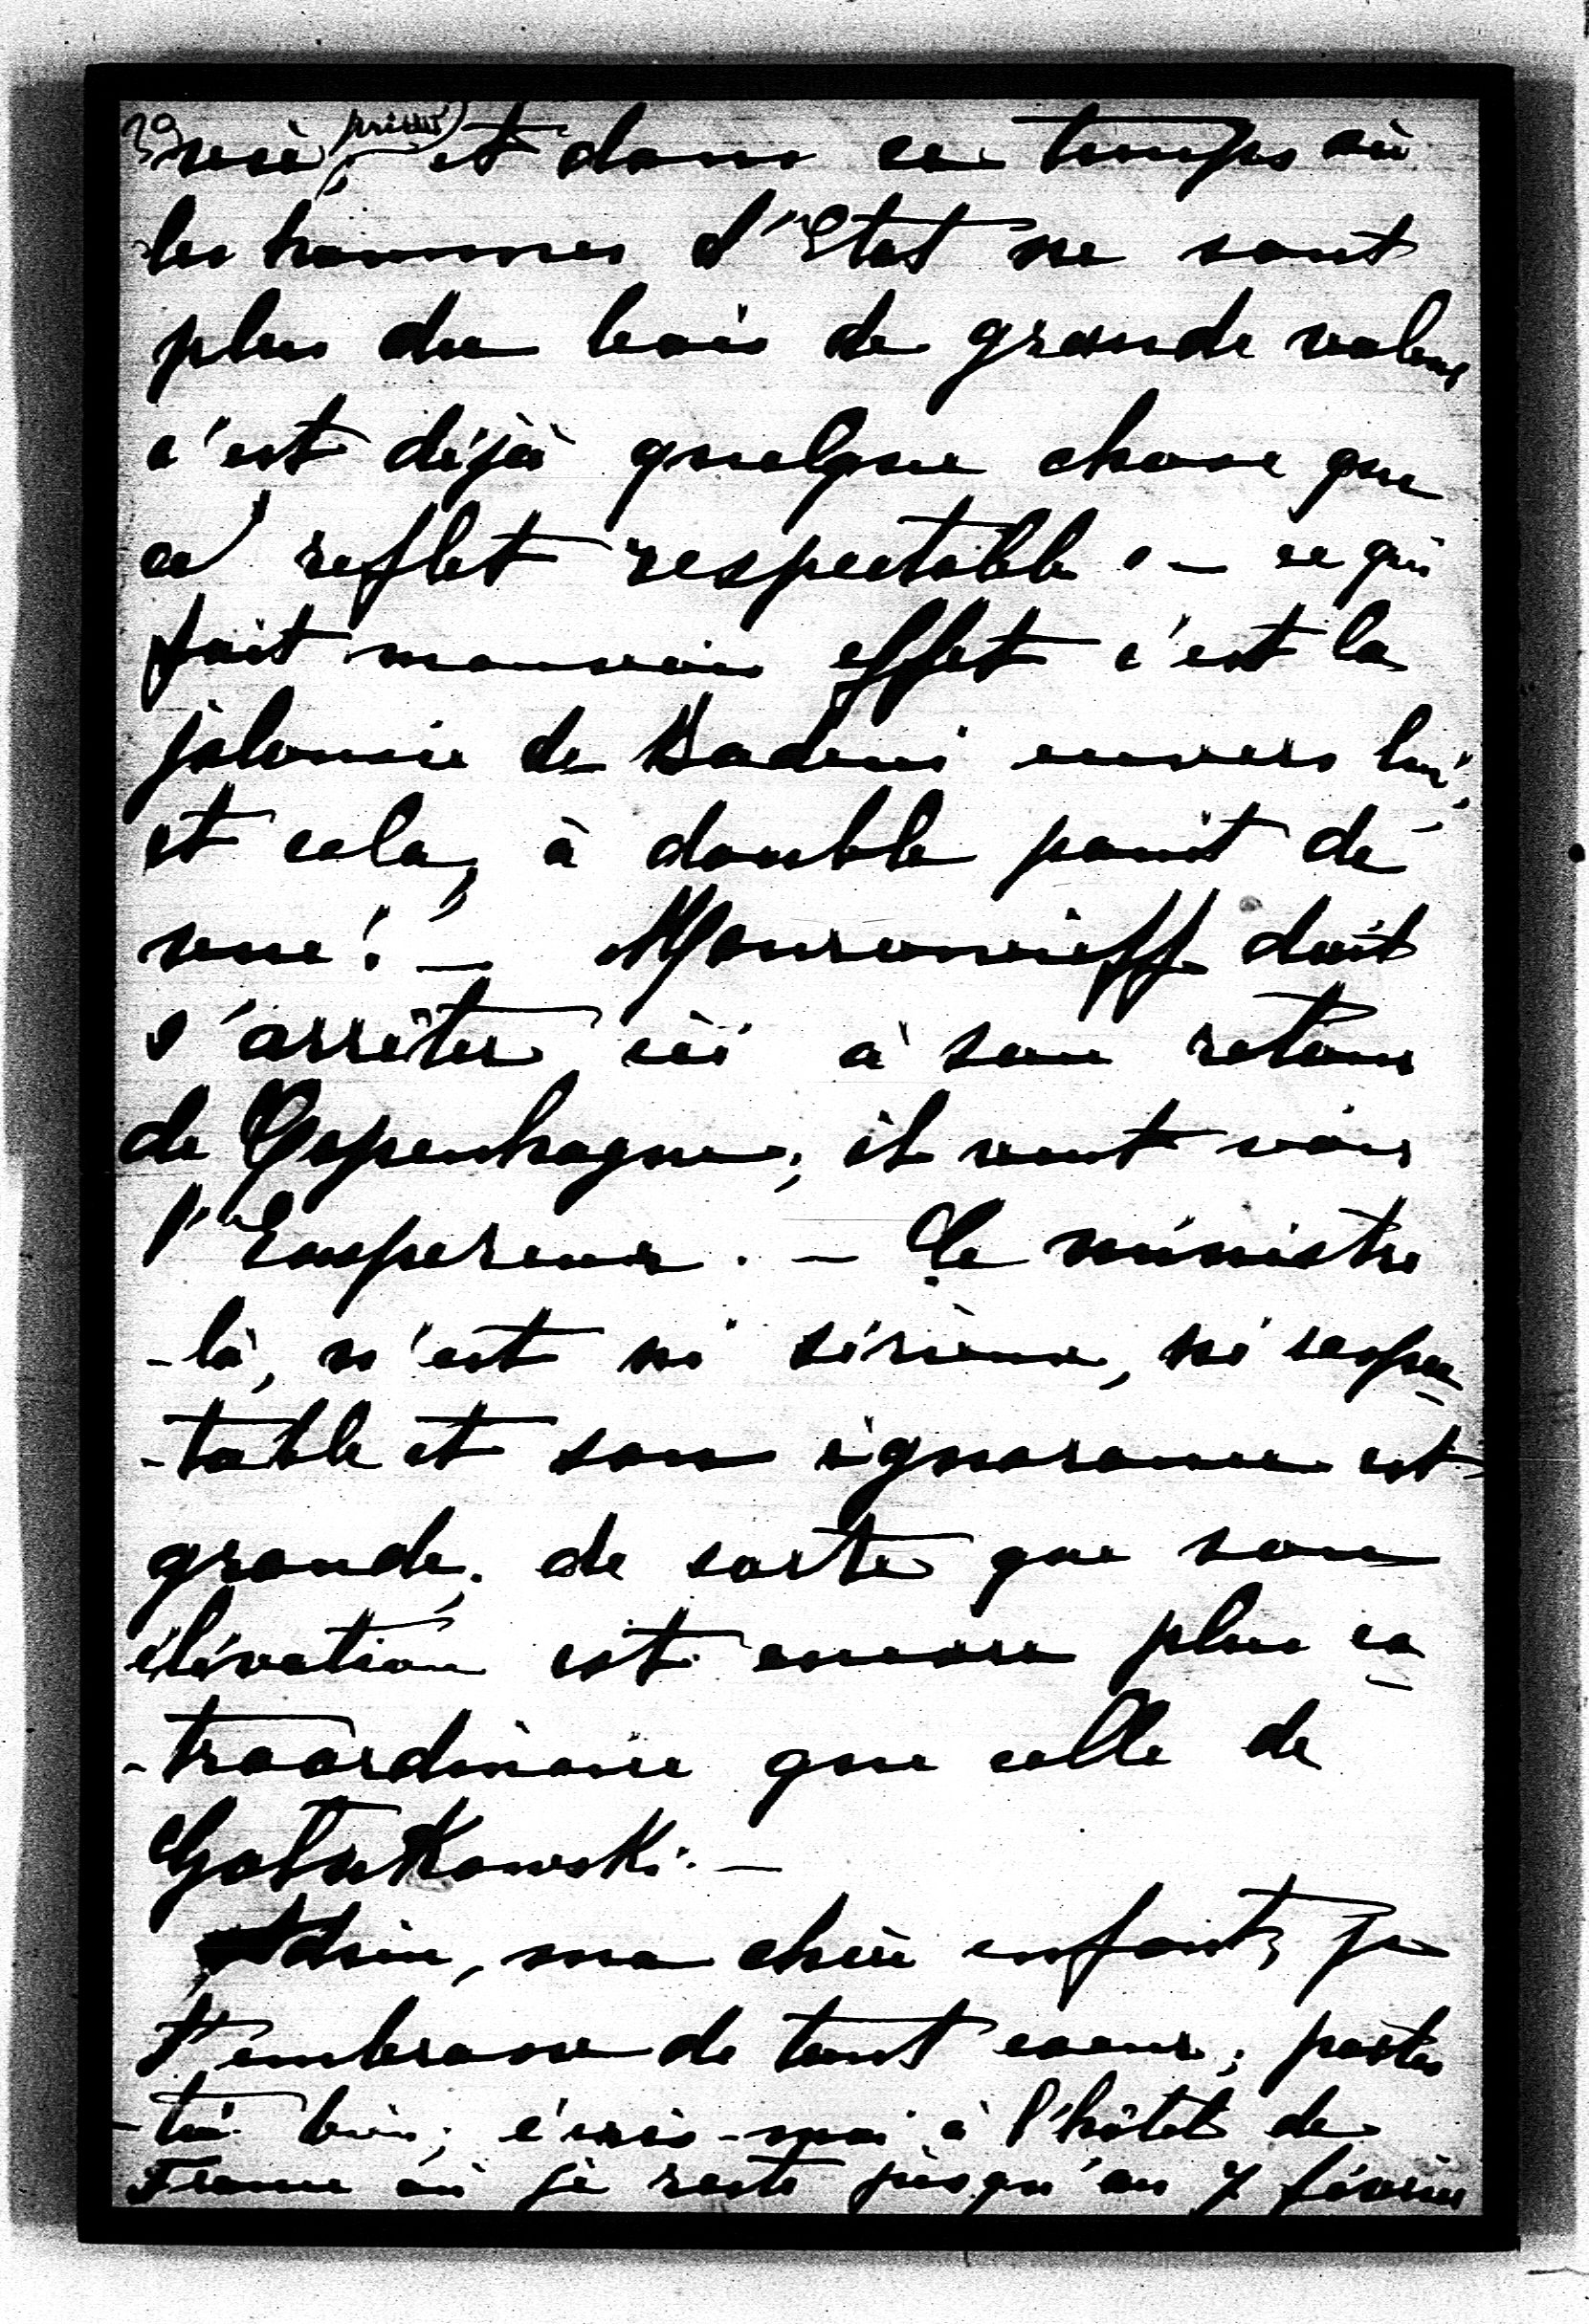 et dans ce temps où
les hommes d'Etat ne sont
plus du bois de grande valeur
c'est déjà quelque chose que
ce reflet respectable. — ce qui
fait mauvais effet c'est la
jalousie de Badeni envers lui,
et cela, à double point de
vue! — Mouravieff doit
s'arrêter ici à son retour
de Copenhague, il veut voir
l'Empereur. — Ce ministre
-là, n'est ni sérieux, ni respec
-table et son ignorance est
grande, de sorte que son
élévation est encore plus ex
-traordinaire que celle de
Goluchowski. —
Adieu, ma chère enfant, je
t'embrasse de tout coeur; portes
-toi bien; écris-moi à l'hôtel de
France où je reste jusqu'au 7 février